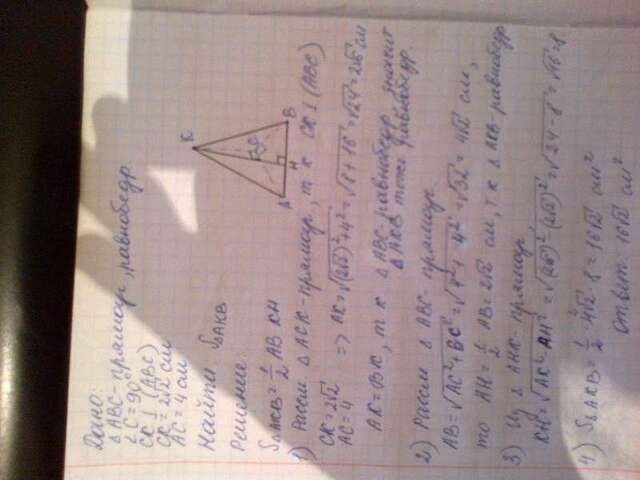 Дано:
△ABC-прямоуг, равнобедр.
∠C=90
CK⊥(ABC)
CK=2√2 см
AC=4 см
Найти S△AKB
Решение:
S△AKB=1/2 AB KH
1) Рассм △ACK-прямоуг, т к CK⊥(ABC)
CK=2√2
AC=4 => AK=√(2√2)²+4²=√8+16=√24=2√6 см
AK=BK, т к △ABC-равнобедр, значит
△AKB тоже равнобедр.
2) Рассм △ABC-прямоуг.
AB=√AC²+BC²=√4²+4²=√32=4√2 см,
то AH=1/2 AB=2√2 см, т к △AKB-равнобедр
3) Из △AHK-прямоуг,
KH=√AK²-AH²=√(2√6)²-(2√2)²=√24-8=√16=8
4) S△AKB=1/2·4√2·8=16√2 см²
Ответ: 16√2 см²
K
A
H
B
C